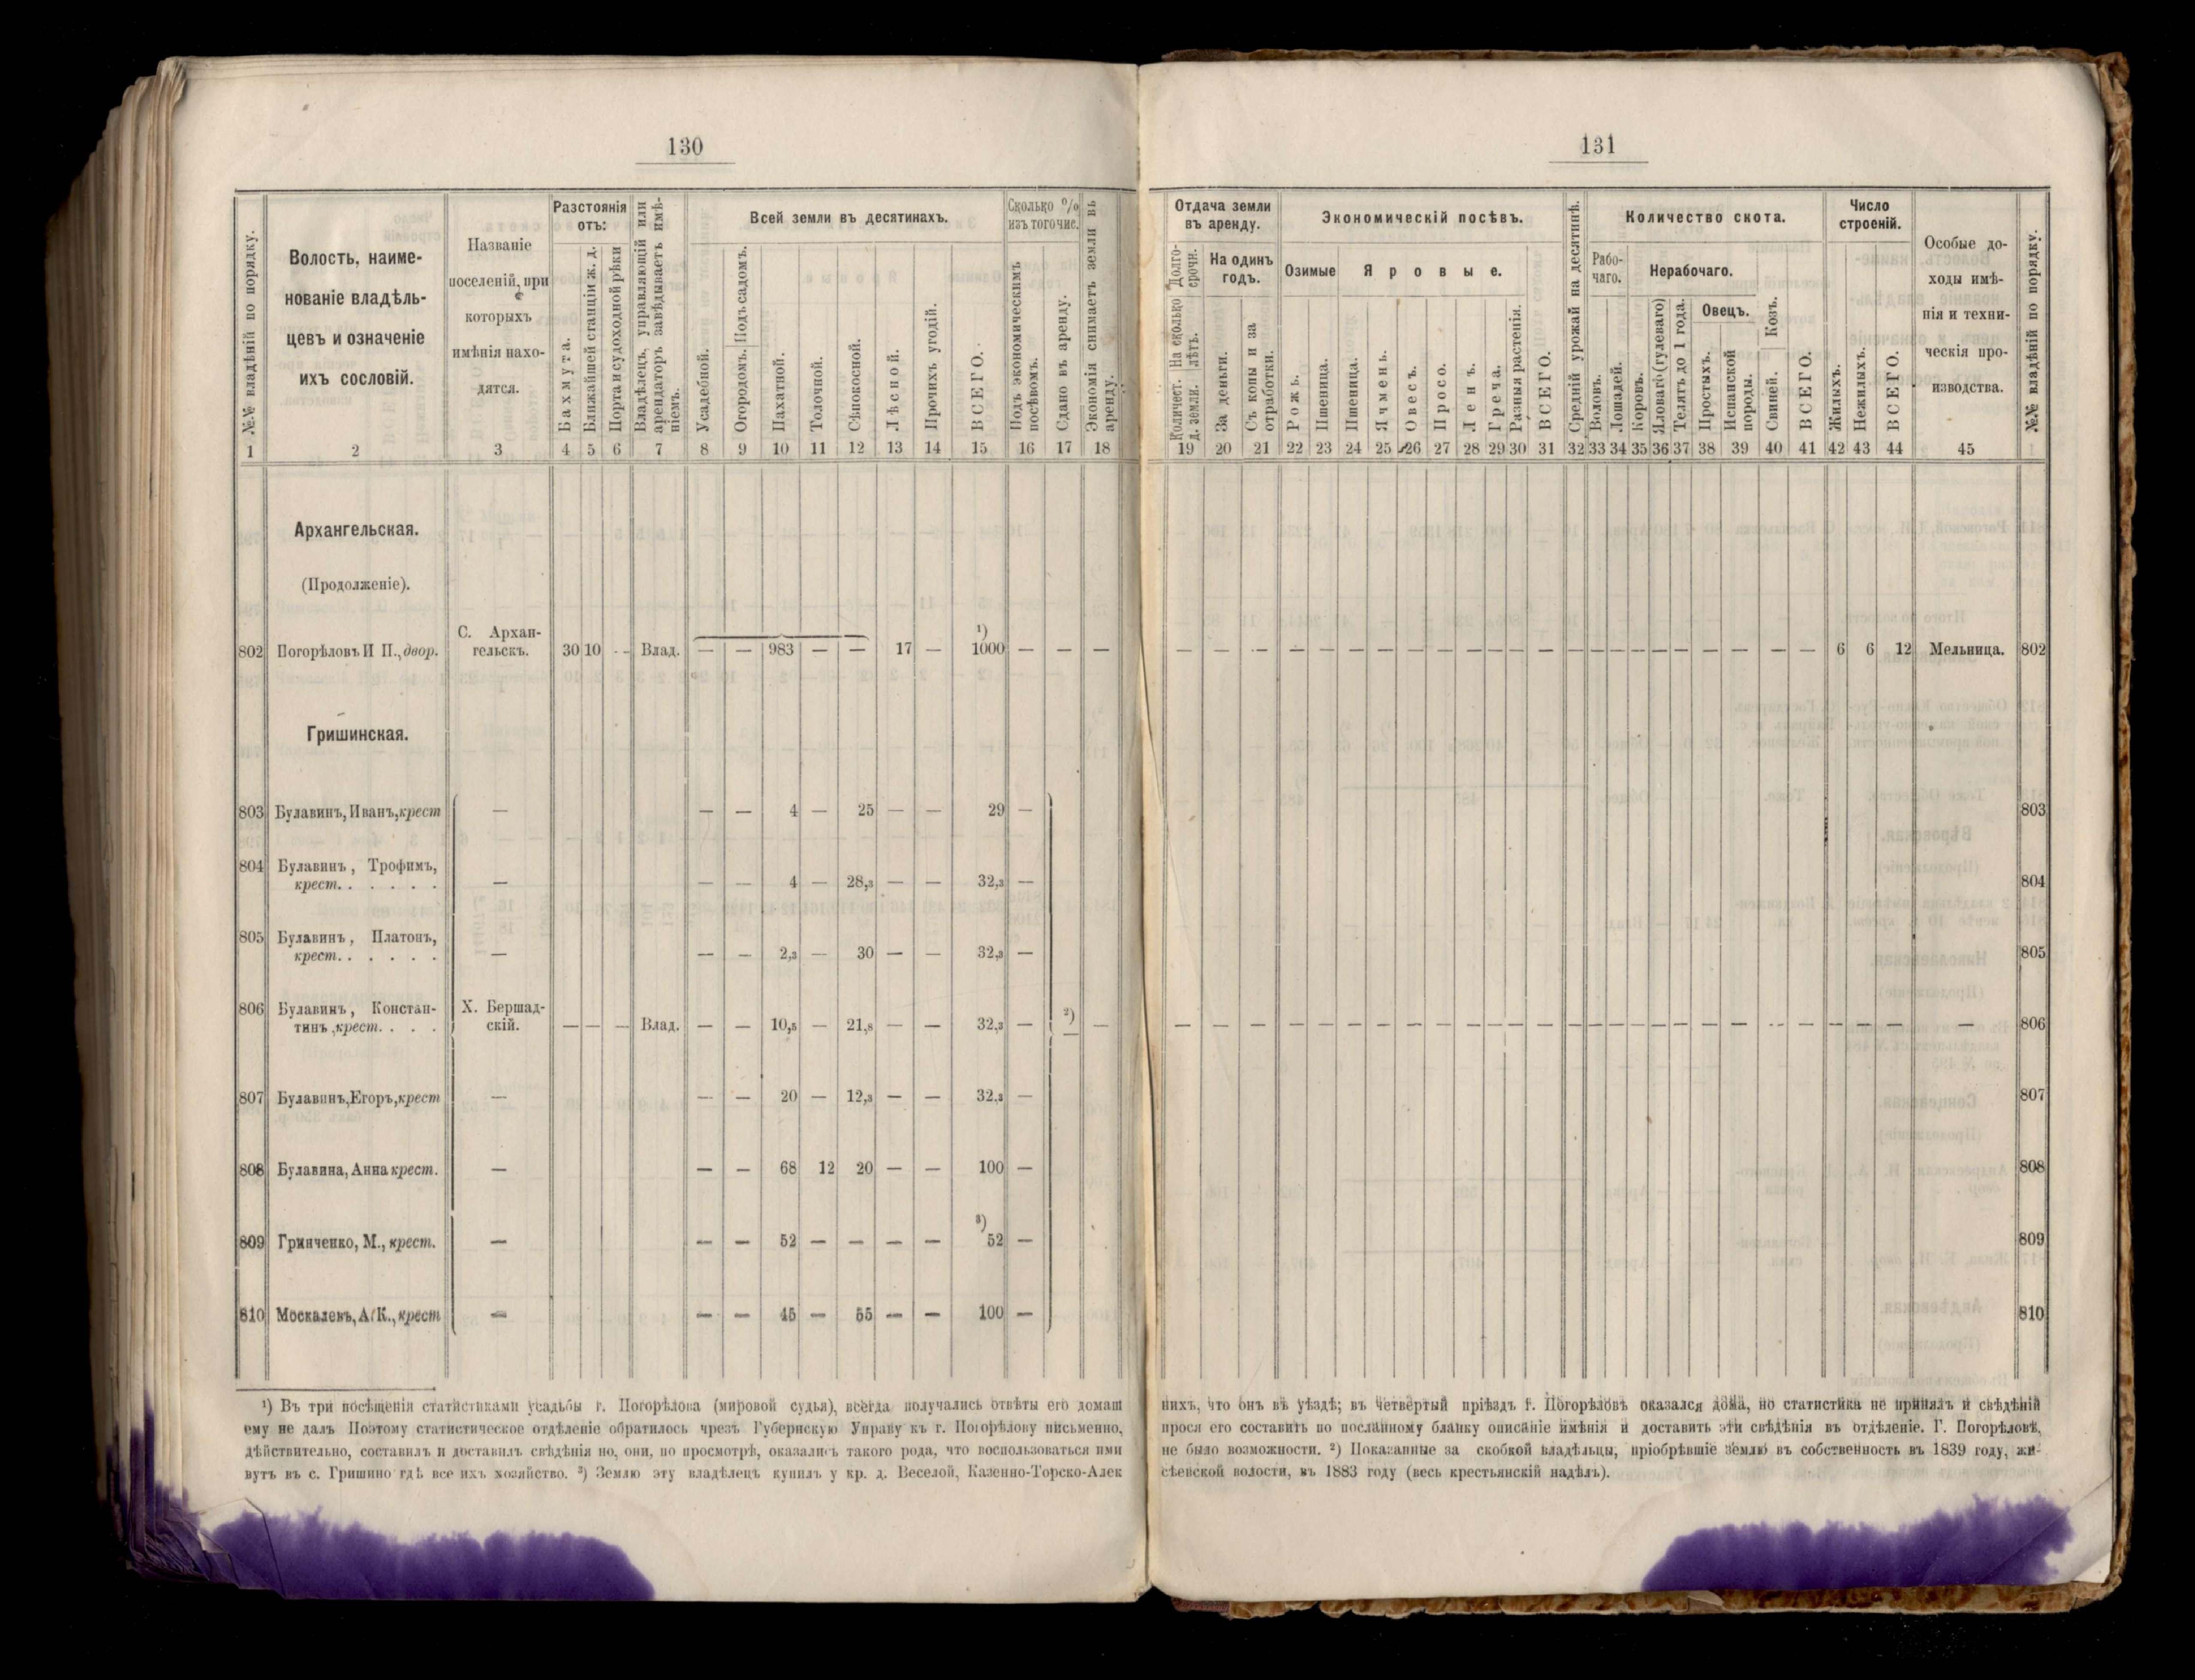 130
№№ владѣній по порядку.
Волость, наиме-
нованіе владѣль-
цевъ и означеніе
ихъ сословій.
Названіе
поселеній, при
которыхъ
имѣнія нахо-
дятся.
Разстоянія
отъ:
Бахмута.
Ближайшей станціи ж. д.
Порта и судоходной рѣки
Владѣлецъ, управляющій или
арендаторъ завѣдываетъ имѣ-
ніемъ.
Всей земли въ десятинахъ.
Усадебной.
Огородомъ. Подъ садомъ.
Пахатной.
Толочной.
Сѣнокосной.
Лѣсной.
Прочихъ угодій.
ВСЕГО.
Сколько %
изъ того чис.
Подъ экономическимъ
посѣвомъ.
Сдано въ аренду.
Экономія снимаетъ земли въ
аренду.
1 2 3 4 5 6 7 8 9 10 11 12 13 14 15 16 17 18
Архангельская.
(Продолженіе).
802 Погорѣловъ И П., двор. С. Архан-
гельскъ. 30 10 - - Влад. — — 983 — — 17 — 1) 1000 — — —
Гришинская.
803 Булавинъ, Иванъ, крест — — — 4 — 25 — — 29 —
804 Булавинъ, Трофимъ,
крест. . . . . . — — — 4 — 28,3 — — 32,3 —
805 Булавинъ, Платонъ,
крест. . . . . . — — — 2,3 — 30 — — 32,3 —
806 Булавинъ, Констан-
тинъ, крест. . . . Х. Бершад-
скій. — — — Влад. — — 10,5 — 21,8 — — 32,3 — 2) — —
807 Булавинъ, Егоръ, крест — — — 20 — 12,3 — — 32,3 —
808 Булавина, Анна крест. — — — 68 12 20 — — 100 —
809 Гринченко, М., крест. — — — 52 — — — — 3) 52 —
810 Москалевъ, А. К., крест — — — 45 — 55 — — 100 —
1) Въ три посѣщенія статистиками усадьбы г. Погорѣлова (мировой судья), всегда получались отвѣты его домаш
ему не далъ Поэтому статистическое отдѣленіе обратилось чрезъ Губернскую Управу къ г. Погорѣлову письменно,
дѣйствительно, составилъ и доставилъ свѣдѣнія но, они, по просмотрѣ, оказались такого рода, что воспользоваться ими
вутъ въ с. Гришино гдѣ все ихъ хозяйство. 3) Землю эту владѣлецъ купилъ у кр. д. Веселой, Казенно-Торско-Алек
131
Отдача земли
въ аренду.
Долго-
срочн.
Количест. На сколько
д. земли. лѣтъ.
На одинъ
годъ.
За деньги.
Съ копы и за
отработки.
Экономическій посѣвъ.
Озимые
Яровые.
Рожь.
Пшеница.
Пшеница.
Ячмень.
Овесъ.
Просо.
Ленъ.
Греча.
Разныя растенія.
ВСЕГО.
Средній урожай на десятинѣ.
Количество скота.
Рабо-
чаго.
Нерабочаго.
Воловъ.
Лошадей.
Коровъ.
Яловаго (гулеваго)
Телятъ до 1 года.
Овецъ.
Простыхъ.
Испанской
породы.
Свиней. Козъ.
ВСЕГО.
Число
строеній.
Жилыхъ.
Нежилыхъ.
ВСЕГО.
Особые до-
ходы имѣ-
нія и техни-
ческія про-
изводства.
№№ владѣній по порядку.
19 20 21 22 23 24 25 26 27 28 29 30 31 32 33 34 35 36 37 38 39 40 41 42 43 44 45
— — — — — — — — — — — — — — — — — — — — — — — 6 6 12 Мельница. 802
803
804
805
— — — — — — — — — — — — — — — — — — — — — — — — — — — 806
807
808
809
810
нихъ, что онъ въ уѣздѣ; въ четвертый пріѣздъ г. Погорѣловъ оказался дома, но статистика не принялъ и свѣдѣній
прося его составить по посланному бланку описаніе имѣнія и доставить эти свѣдѣнія въ отдѣленіе. Г. Погорѣловъ,
не было возможности. 2) Показанные за скобкой владѣльцы, пріобрѣвшіе землю въ собственность въ 1839 году, жи-
сѣевской волости, въ 1883 году (весь крестьянскій надѣлъ).